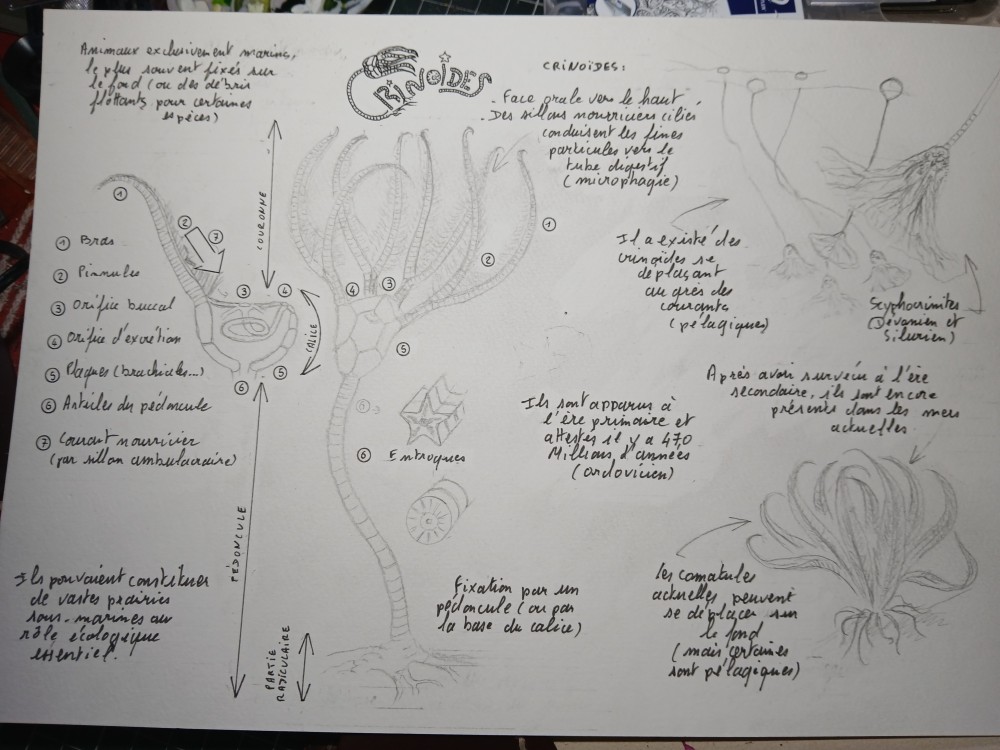 Animaux exclusivement marins,
le plus souvent fixés sur
le fond (ou des débris
flottants pour certaines
espèces)
CRINOÏDES
CRINOÏDES:
- Face orale vers le haut
- Des sillons nourriciers ciliés
conduisent les fines
particules vers le
tube digestif
(microphagie)
COURONNE
1
2
7
3
4
CALICE
5
6
1
2
3
4
5
6
1 Bras
2 Pinnules
3 Orifice buccal
4 Orifice d'excrétion
5 Plaques (brachiales...)
6 Articles du pédoncule
7 Courant nourricier
(par sillon ambulacraire)
PÉDONCULE
PARTIE
RADICULAIRE
Ils pouvaient constituer
de vastes prairies
sous-marines au
rôle écologique
essentiel.
6 Entroques
Fixation par un
pédoncule (ou par
la base du calice)
Ils sont apparus à
l'ère primaire et
attestés il y a 470
Millions d'années
(ordovicien)
Il a existé des
crinoïdes se
déplaçant
au grès des
courants
(pélagiques)
Scyphocrinites
(Dévonien et
Silurien)
Après avoir survécu à l'ère
secondaire, ils sont encore
présents dans les mers
actuelles.
Les comatules
actuelles peuvent
se déplacer sur
le fond
(mais certaines
sont pélagiques)